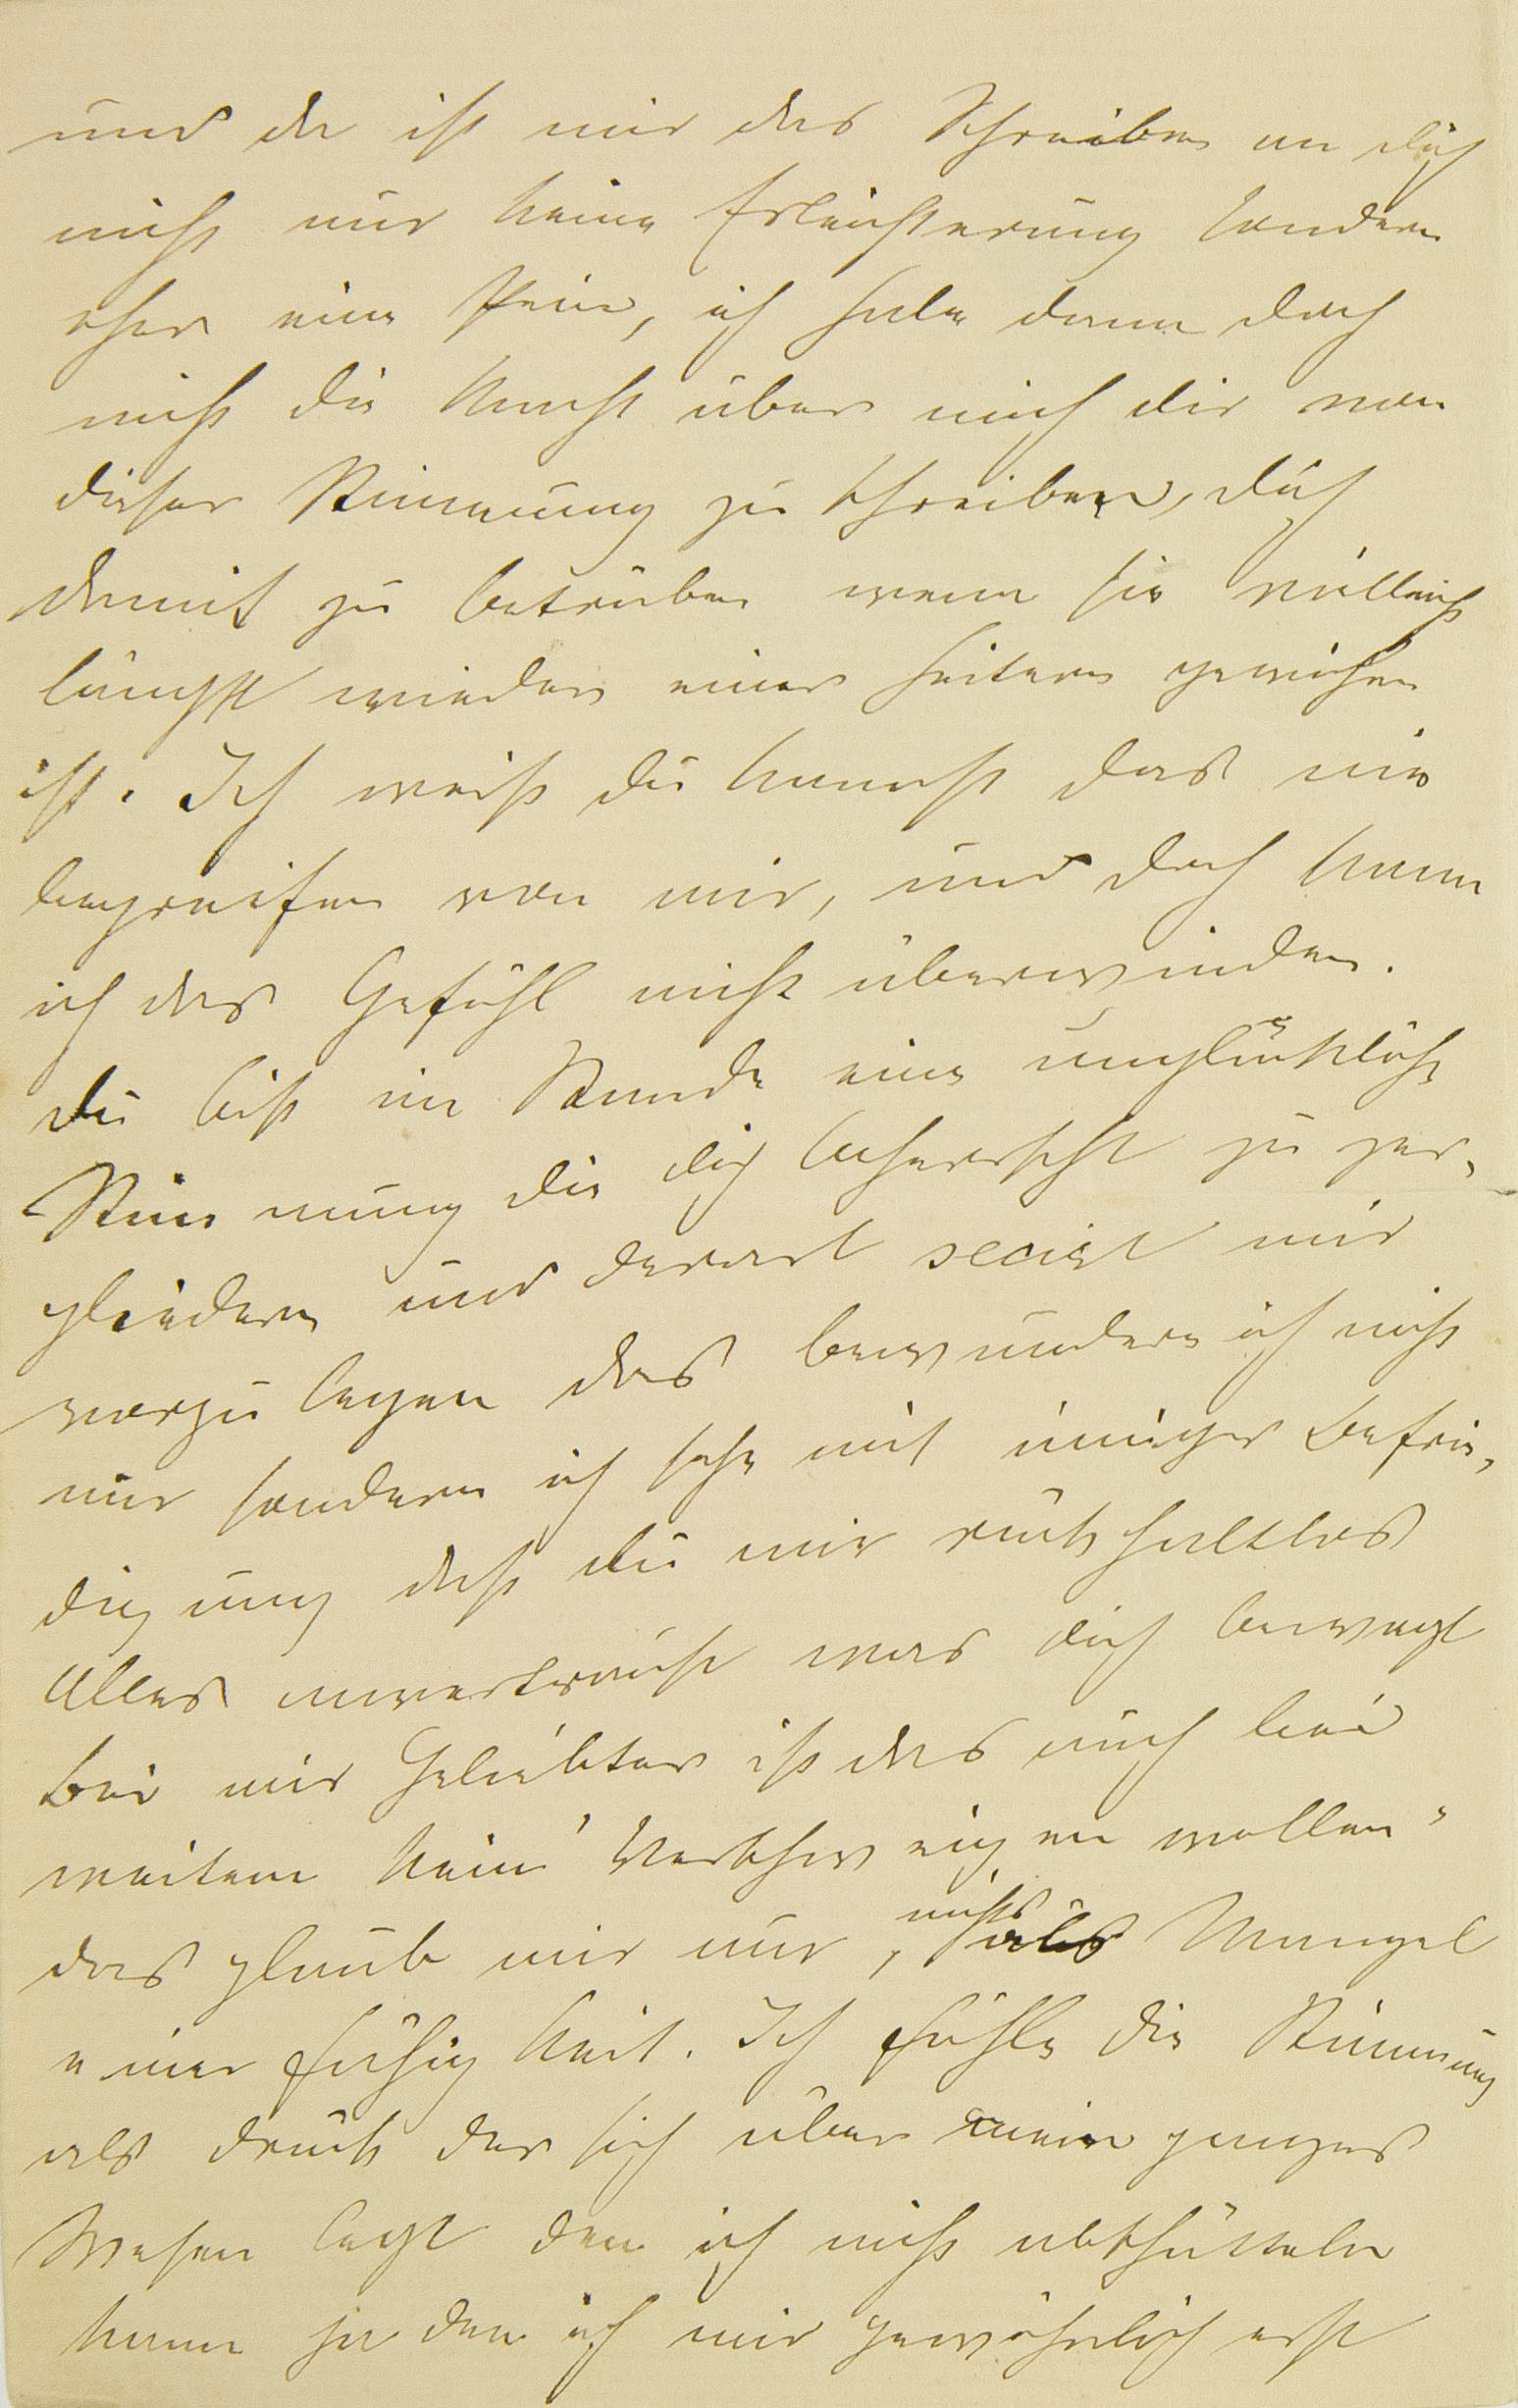 und da ist mir das Schreiben an dich
nicht nur keine Erleichterung sondern
eher eine Pein, ich habe dann doch
nicht die Macht über mich dir von
dieser Stimmung zu schreiben, dich
damit zu betrüben wenn sie vielleicht
längst wieder einer heitern gewichen
ist. Ich weiß du kannst das nie
begreifen von mir, und doch kann
ich das Gefühl nicht überwinden.
du bist im Stande eine unglückliche
Stimmung die dich beherrscht zu zer-
gliedern und derart secirt mir
vorzulegen das bewundere ich nicht
nur sondern ich sehe mit inniger Befrie-
digung daß du mir rückhaltlos
Alles anvertraust was dich bewegt
bei mir Geliebter ist das auch bei
weitem kein „Verschweigen wollen"
das glaub mir nur, nichts als Mangel
einer Fähigkeit. Ich fühle die Stimmung
als druck der sich über mein ganzes
Wesen legt den ich nicht abschütteln
kann ja den ich mir gewöhnlich erst